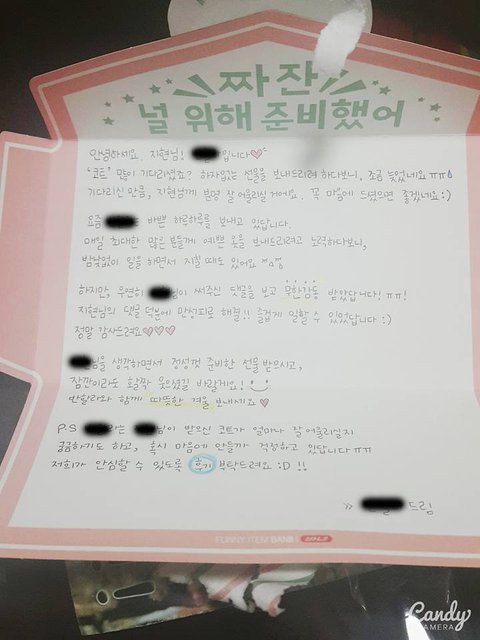 짜잔
널 위해 준비했어
안녕하세요, 지현님! 입니다♡
'코트' 많이 기다리셨죠? 하자없는 선물을 보내드리려 하다보니, 조금 늦었네요 ㅠㅠ
기다리신 만큼, 지현님께 분명 잘 어울리실 거에요. 꼭 마음에 드셨으면 좋겠네요 :)
요즘 바쁜 하루하루를 보내고 있답니다.
매일 최대한 많은 분들께 예쁜 옷을 보내드리려고 노력하다보니,
밤낮없이 일을 하면서 지칠 때도 있어요
하지만, 우연히 님이 써주신 댓글을 보고 무한감동 받았답니다! ㅠㅠ!
지현님의 댓글 덕분에 만성피로 해결!! 즐겁게 일할 수 있었답니다 :)
정말 감사드려요♡♡♡
님을 생각하면서 정성껏 준비한 선물 받으시고,
잠깐이라도 활짝 웃으셨길 바랄게요!
함께 따뜻한 겨울 보내세요♡
P.S 는 님이 받으신 코트가 얼마나 잘 어울리실지
궁금하기도 하고, 혹시 마음에 안들까 걱정하고 있답니다 ㅠㅠ
저희가 안심할 수 있도록 후기 부탁드려요 :D !!
>> 드림
FUNNY ITEM
Candy
CAMERA